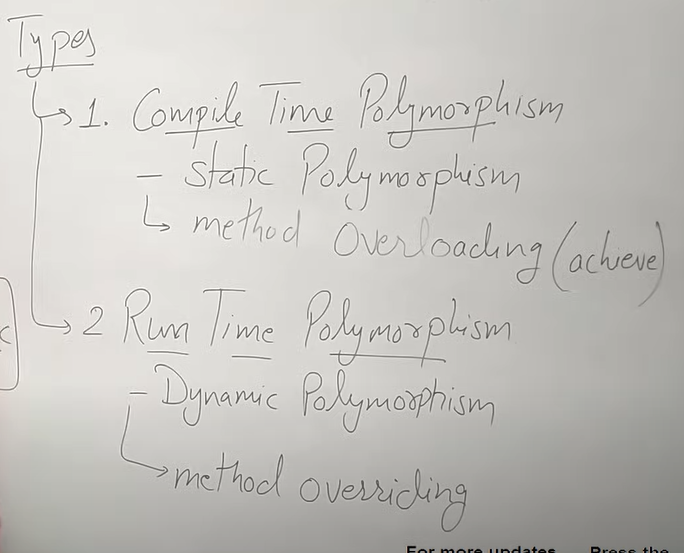 Types
1. Compile Time Polymorphism
- Static Polymorphism
method Overloading (achieve)
2 Run Time Polymorphism
- Dynamic Polymorphism
method overriding
For more updates Press the